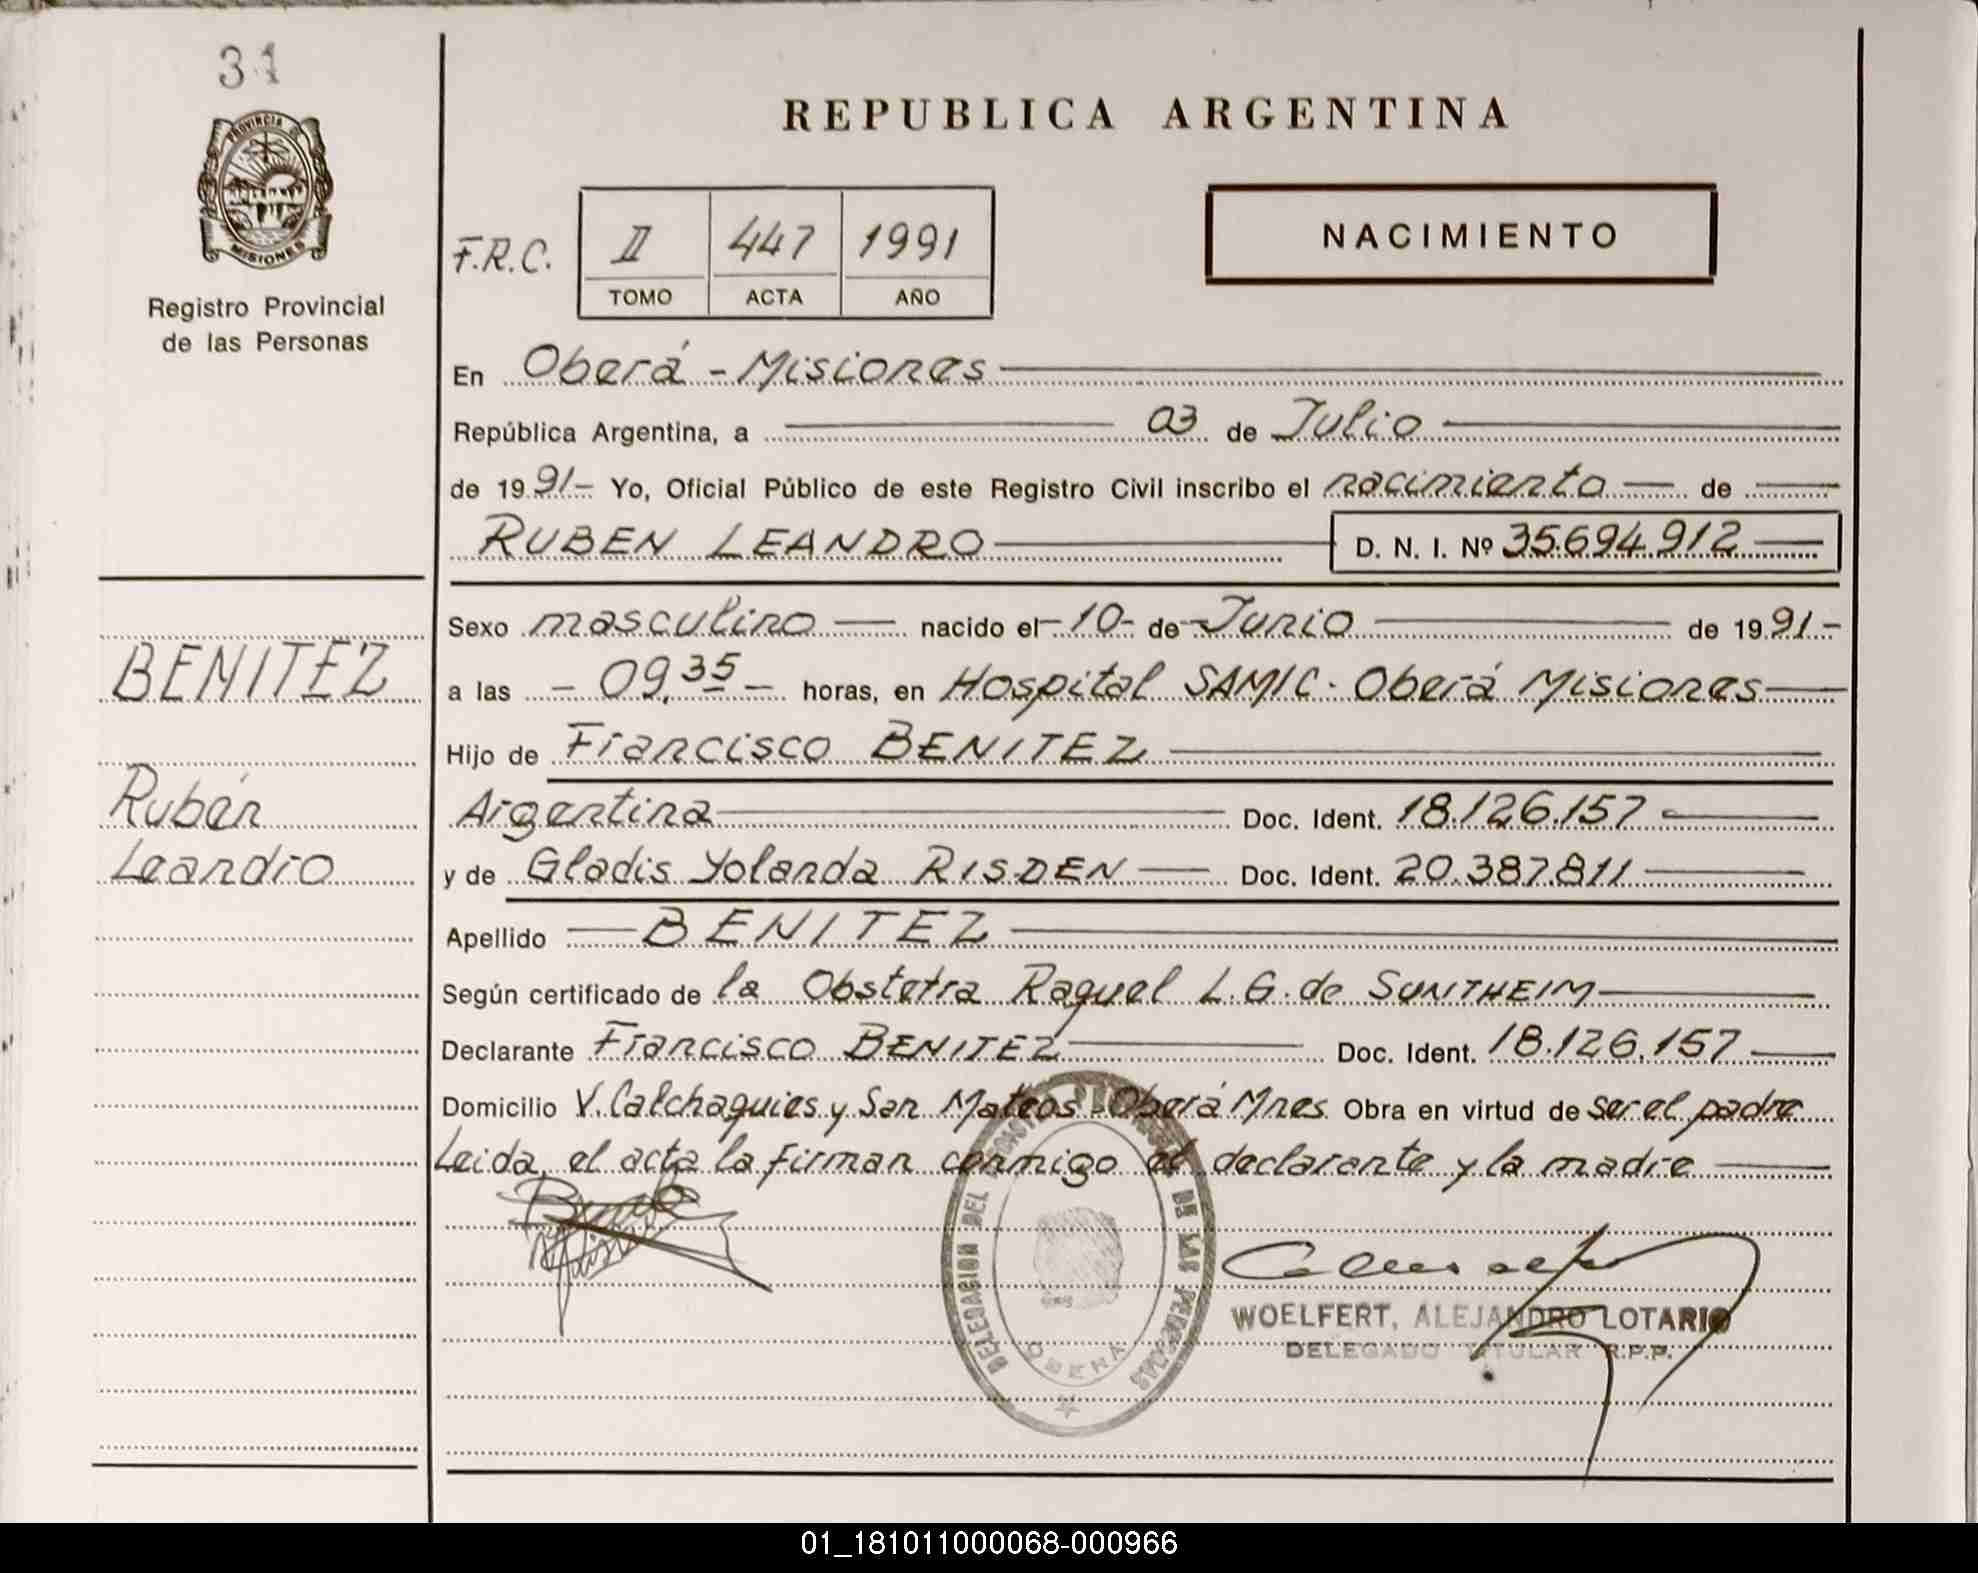 31
PROVINCIA DE
MISIONES
Registro Provincial
de las Personas
REPUBLICA ARGENTINA
NACIMIENTO
F.R.C. II 447 1991
TOMO ACTA AÑO
En Oberá - Misiones
República Argentina, a 03 de Julio
de 1991- Yo, Oficial Público de este Registro Civil inscribo el nacimiento de
RUBEN LEANDRO D. N. I. Nº 35.694.912
BENITEZ
Rubén
Leandro
Sexo masculino nacido el 10- de Junio de 1991-
a las - 09,35 - horas, en Hospital SAMIC - Oberá Misiones
Hijo de Francisco BENITEZ
Argentina Doc. Ident. 18.126.157
y de Gladis Yolanda RISDEN Doc. Ident. 20.387.811
Apellido BENITEZ
Según certificado de la Obstetra Raquel L. G. de SUNTHEIM
Declarante Francisco BENITEZ Doc. Ident. 18.126.157
Domicilio V. Calchaquies y San Mateos - Oberá Mnes. Obra en virtud de ser el padre
Leida, el acta la firman conmigo el declarante y la madre
DELEGACION DEL REGISTRO DE LAS PERSONAS
OBERA
WOELFERT, ALEJANDRO LOTARIO
DELEGADO TITULAR R.P.P.
01_181011000068-000966